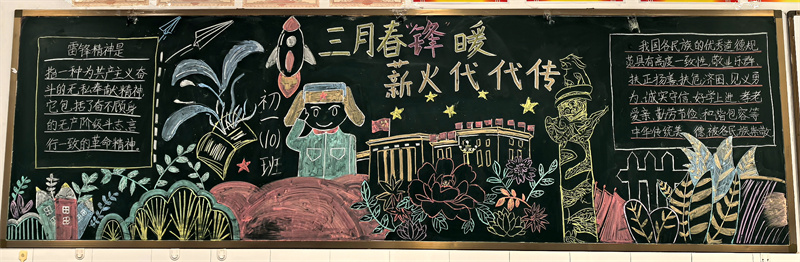 雷锋精神是
指一种为共产主义奋
斗的无私奉献精神
它包括了奋不顾身
的无产阶级斗志言
行一致的革命精神
三月春"锋"暖
薪火代代传
初一(10)班
我国各民族的优秀道德规
范具有高度一致性,敬业乐群,
扶正扬善,扶危济困,见义勇
为,诚实守信,好学上进,孝老
爱亲,勤劳节俭,和谐包容等
中华传统美